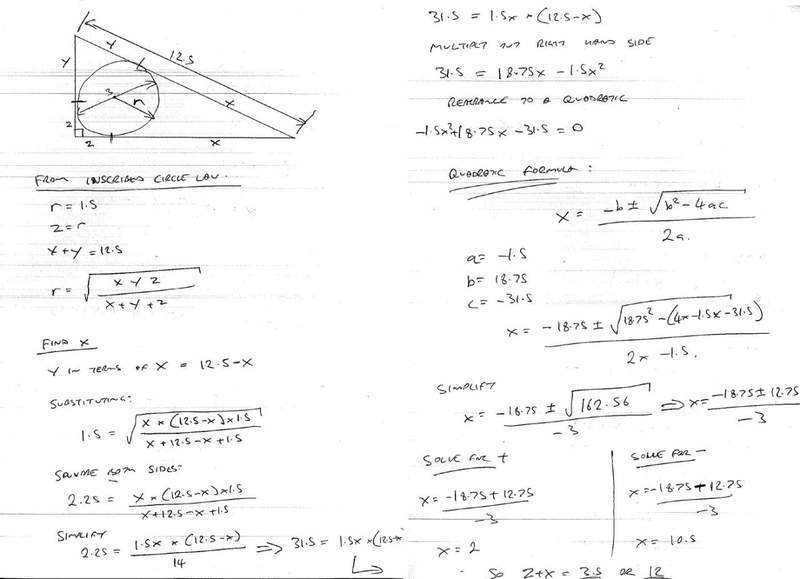 y
12.5
y
3
r
x
z
z
x
FROM INSCRIBED CIRCLE LAW.
r = 1.5
z = r
x + y = 12.5
r = √(x y z / x + y + z)
FIND X
Y IN TERMS OF X = 12.5 - X
SUBSTITUTING:
1.5 = √(x × (12.5-x) × 1.5 / x + 12.5 - x + 1.5)
SQUARE BOTH SIDES:
2.25 = x × (12.5-x) × 1.5 / x + 12.5 - x + 1.5
SIMPLIFY
2.25 = 1.5x × (12.5-x) / 14 ⇒ 31.5 = 1.5x × (12.5-x
31.5 = 1.5x × (12.5-x)
MULTIPLY OUT RIGHT HAND SIDE
31.5 = 18.75x - 1.5x²
REARRANGE TO A QUADRATIC
-1.5x²+18.75x - 31.5 = 0
QUADRATIC FORMULA:
x = -b ± √(b² - 4ac) / 2a.
a = -1.5
b = 18.75
c = -31.5
x = -18.75 ± √(18.75² - (4x-1.5x-31.5)) / 2x -1.5.
SIMPLIFY
x = -18.75 ± √162.56 / -3 ⇒ x = -18.75 ± 12.75 / -3
SOLVE FOR +
x = -18.75 + 12.75 / -3
x = 2
SOLVE FOR -
x = -18.75 + 12.75 / -3
x = 10.5
SO z+x = 3.5 OR 12